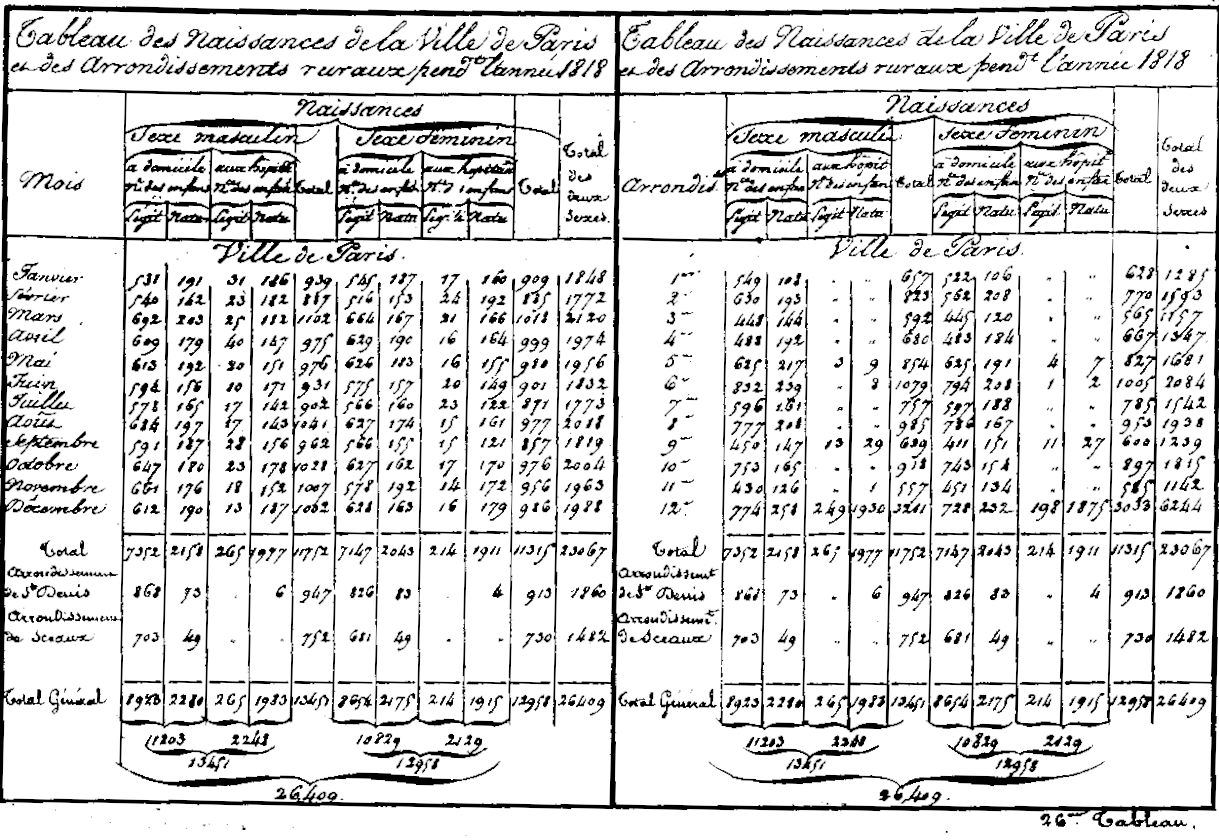 Tableau des Naissances de la Ville de Paris
et des Arrondissements ruraux pendt l'année 1818
Mois
Naissances
Sexe masculin Sexe féminin
à domicile aux hôpit à domicile aux hôpitau
Nre des enfans Nre des enfans Total Nre des enfs Nre d enfans Total Total des deux Sexes
Légit Natu Légit Natu Légit Natu Légit Natu
Ville de Paris.
Janvier 531 191 31 186 939 545 187 17 160 909 1848
Février 540 142 23 182 887 516 153 24 192 885 1772
Mars 692 203 25 182 1102 664 167 21 166 1018 2120
Avril 609 179 40 147 975 629 190 16 164 999 1974
Mai 613 192 20 151 976 626 183 16 155 980 1956
Juin 594 156 10 171 931 575 157 20 149 901 1832
Juillet 578 165 17 142 902 566 160 23 122 871 1773
Août 684 197 17 143 1041 627 174 15 161 977 2018
Septembre 591 187 28 156 962 566 155 15 121 857 1819
Octobre 647 180 23 178 1028 627 162 17 170 976 2004
Novembre 661 176 18 152 1007 578 192 14 172 956 1963
Décembre 612 190 13 187 1002 628 163 16 179 986 1988
Total 7352 2158 265 1977 11752 7147 2043 214 1911 11315 23067
Arrondissement
de St Denis 868 73 6 947 826 83 4 913 1860
Arrondissement
de Sceaux 703 49 752 681 49 730 1482
Total Général 8923 2280 265 1983 13451 8654 2175 214 1915 12958 26409
11203 2248 10829 2129
13451 12958
26,409.
Tableau des Naissances de la Ville de Paris
et des Arrondissements ruraux pendt l'année 1818
Arrondis.
Naissances
Sexe masculin Sexe Féminin
à domicile aux hôpit à domicile aux hôpitx
Nre des enfan Nre des enfan Total Nre des enfan Nre des enfan Total Total des deux Sexes
Légit Natu Légit Natu Légit Natu Légit Natu
Ville de Paris.
1er 549 108 " " 657 522 106 " " 628 1285
2me 630 193 " " 823 562 208 " " 770 1593
3me 448 144 " " 592 445 120 " " 565 1157
4me 488 192 " " 680 483 184 " " 667 1347
5me 625 217 3 9 854 625 191 4 7 827 1681
6me 832 239 " 8 1079 794 208 1 2 1005 2084
7me 596 161 " " 757 597 188 " " 785 1542
8me 777 208 " " 985 786 167 " " 953 1938
9me 450 147 13 29 639 411 151 11 27 600 1239
10me 753 165 " " 918 743 154 " " 897 1815
11me 430 126 " 1 557 451 134 " " 585 1142
12me 774 258 249 1930 3211 728 232 198 1875 3033 6244
Total 7352 2158 265 1977 11752 7147 2043 214 1911 11315 23067
Arrondissemt
de St Denis 868 73 " 6 947 826 83 " 4 913 1860
Arrondissemt
de Sceaux 703 49 " " 752 681 49 " " 730 1482
Total Général 8923 2280 265 1983 13451 8654 2175 214 1915 12958 26409
11203 2248 10829 2129
13451 12958
26,409.
26me Tableau.